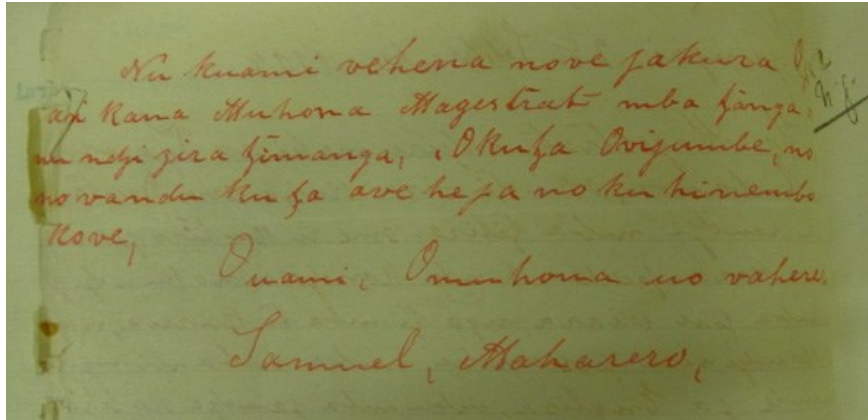 Nu kuami vehena nove jakura
ari kana Muhona Magestrat mba tjanga,
nu ndji zira tjimanga, Okutja Ovijumbe, no
no vandu ku tja ave hepa no ku hinembo
kove,
Ouami, Omuhona uo vahere,
Samuel, Maharero,